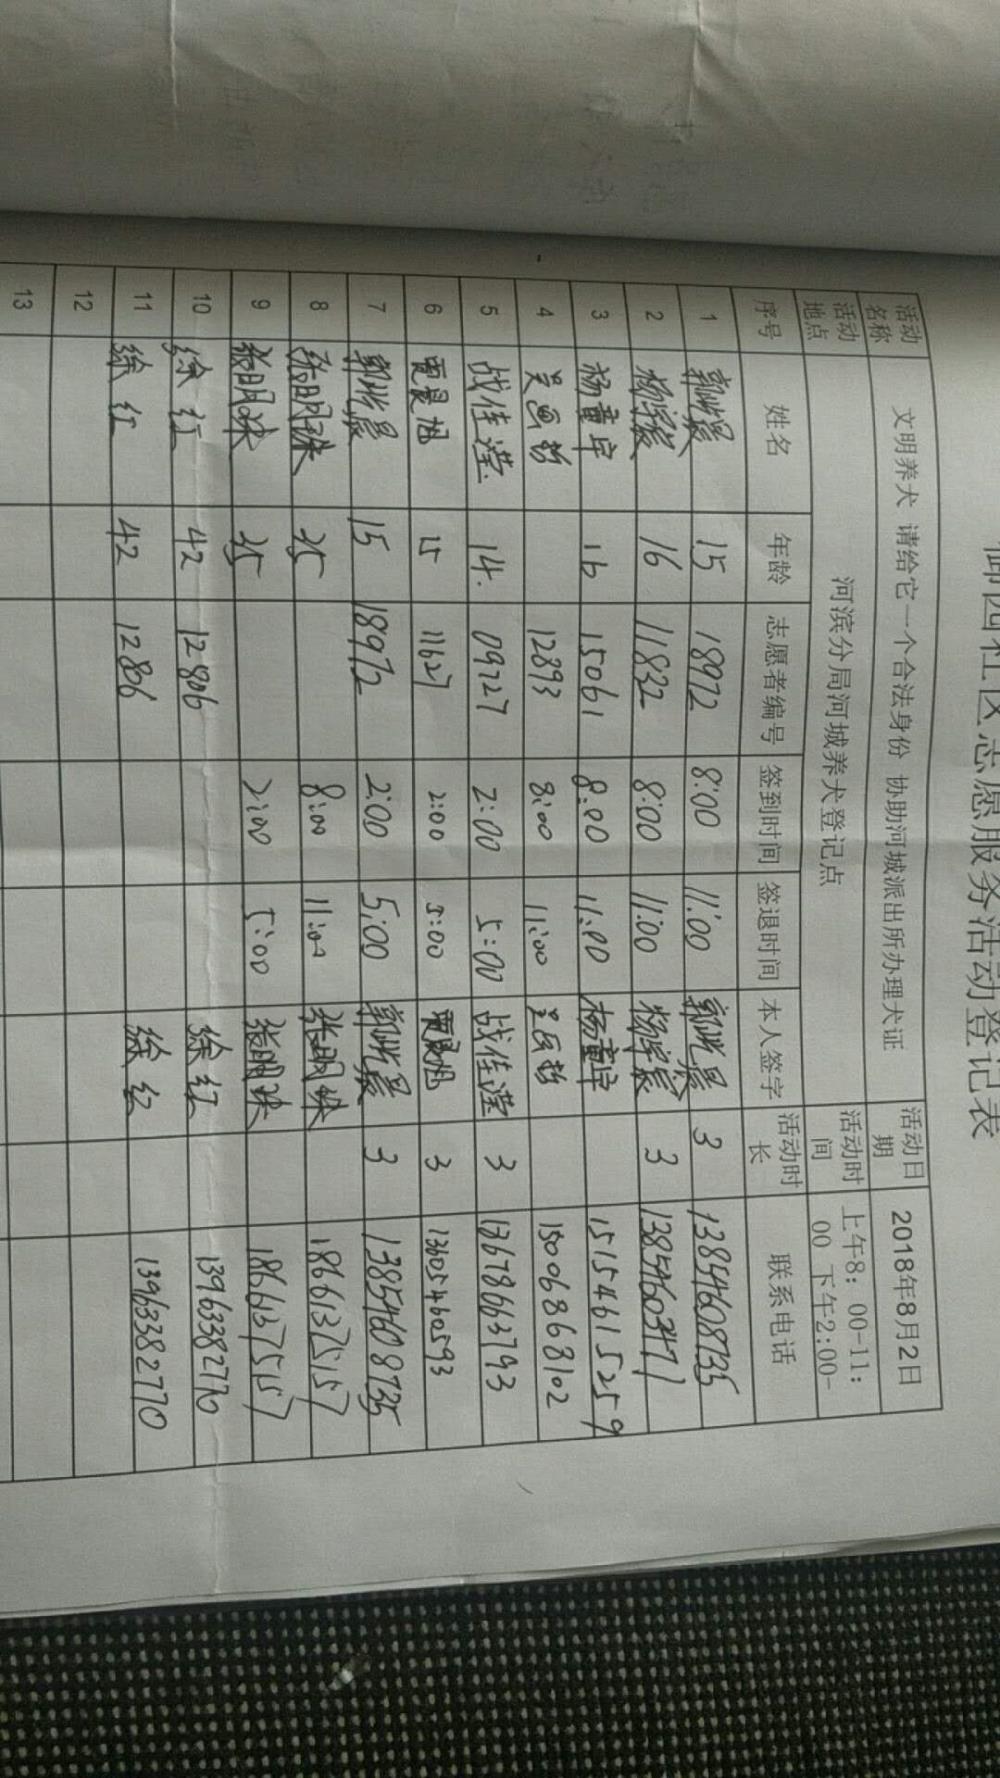 社区志愿服务活动登记表
活动名称 文明养犬 请给它一个合法身份 协助河城派出所办理犬证 活动日期 2018年8月2日
活动地点 河滨分局河城养犬登记点 活动时间 上午8：00-11：00 下午2:00-
序号 姓名 年龄 志愿者编号 签到时间 签退时间 本人签字 活动时长 联系电话
1 15 18972 8:00 11:00 3 13854608735
2 16 11832 8:00 11:00 3
3 杨童宇 16 15061 8:00 11:00 杨童宇 15154615259
4 12893 8:00 11:00 15068668102
5 战佳滢 14. 09227 2:00 5:00 战佳滢 3 13678663793
6 15 11627 2:00 5:00 3 13605460593
7 15 18972 2:00 5:00 3 13854608735
8 张明珠 35 8:00 11:00 张明珠 18661375157
9 张明珠 35 2:00 5:00 张明珠 18661375157
10 徐红 42 12806 徐红 13963382770
11 徐红 42 12806 徐红 13963382770
12
13